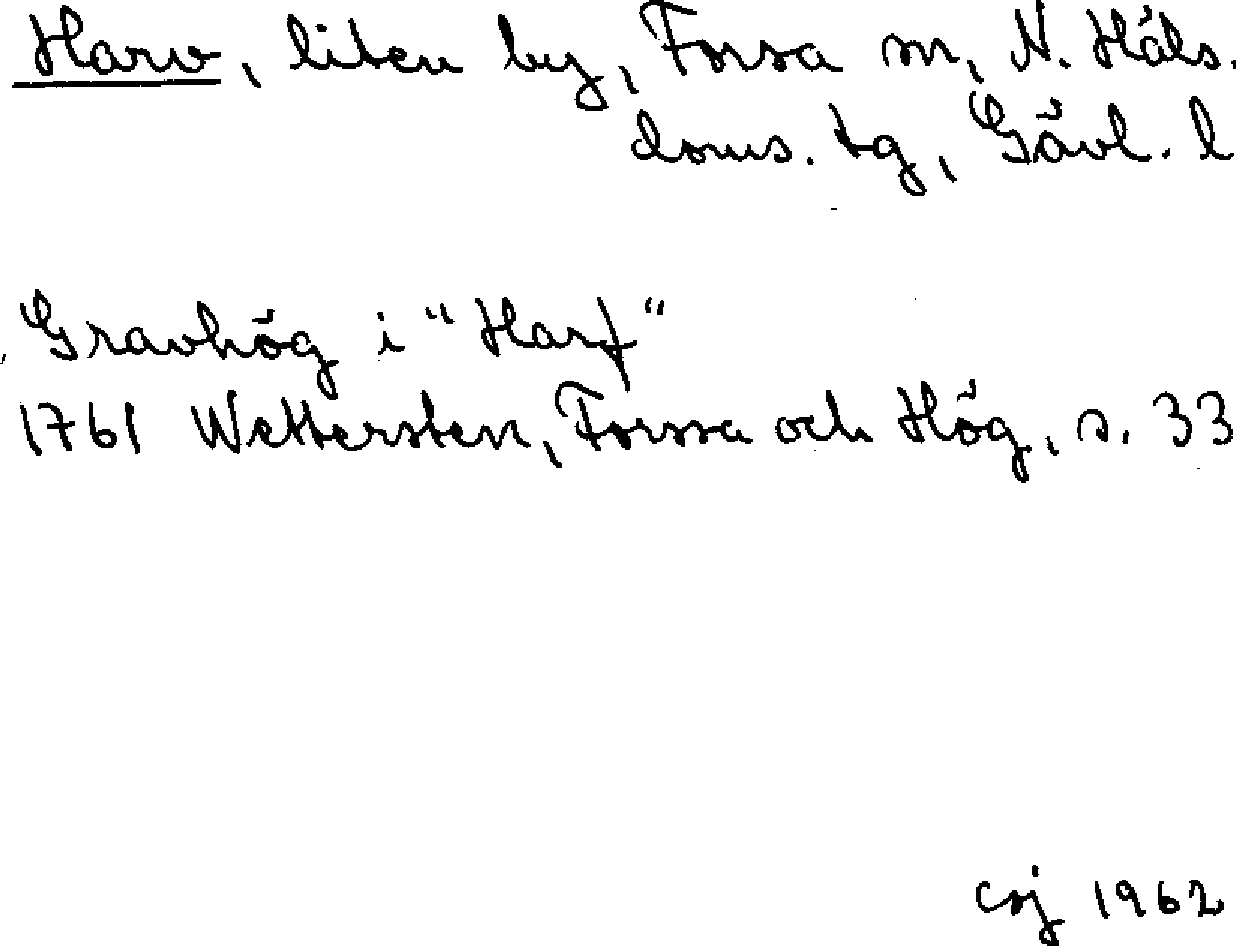 Harv, liten by, Forsa sn, N. Häls.
doms. tg, Gävl. l
Gravhög i "Harf"
1761 Wettersten, Forssa och Hög, s. 33
csj 1962